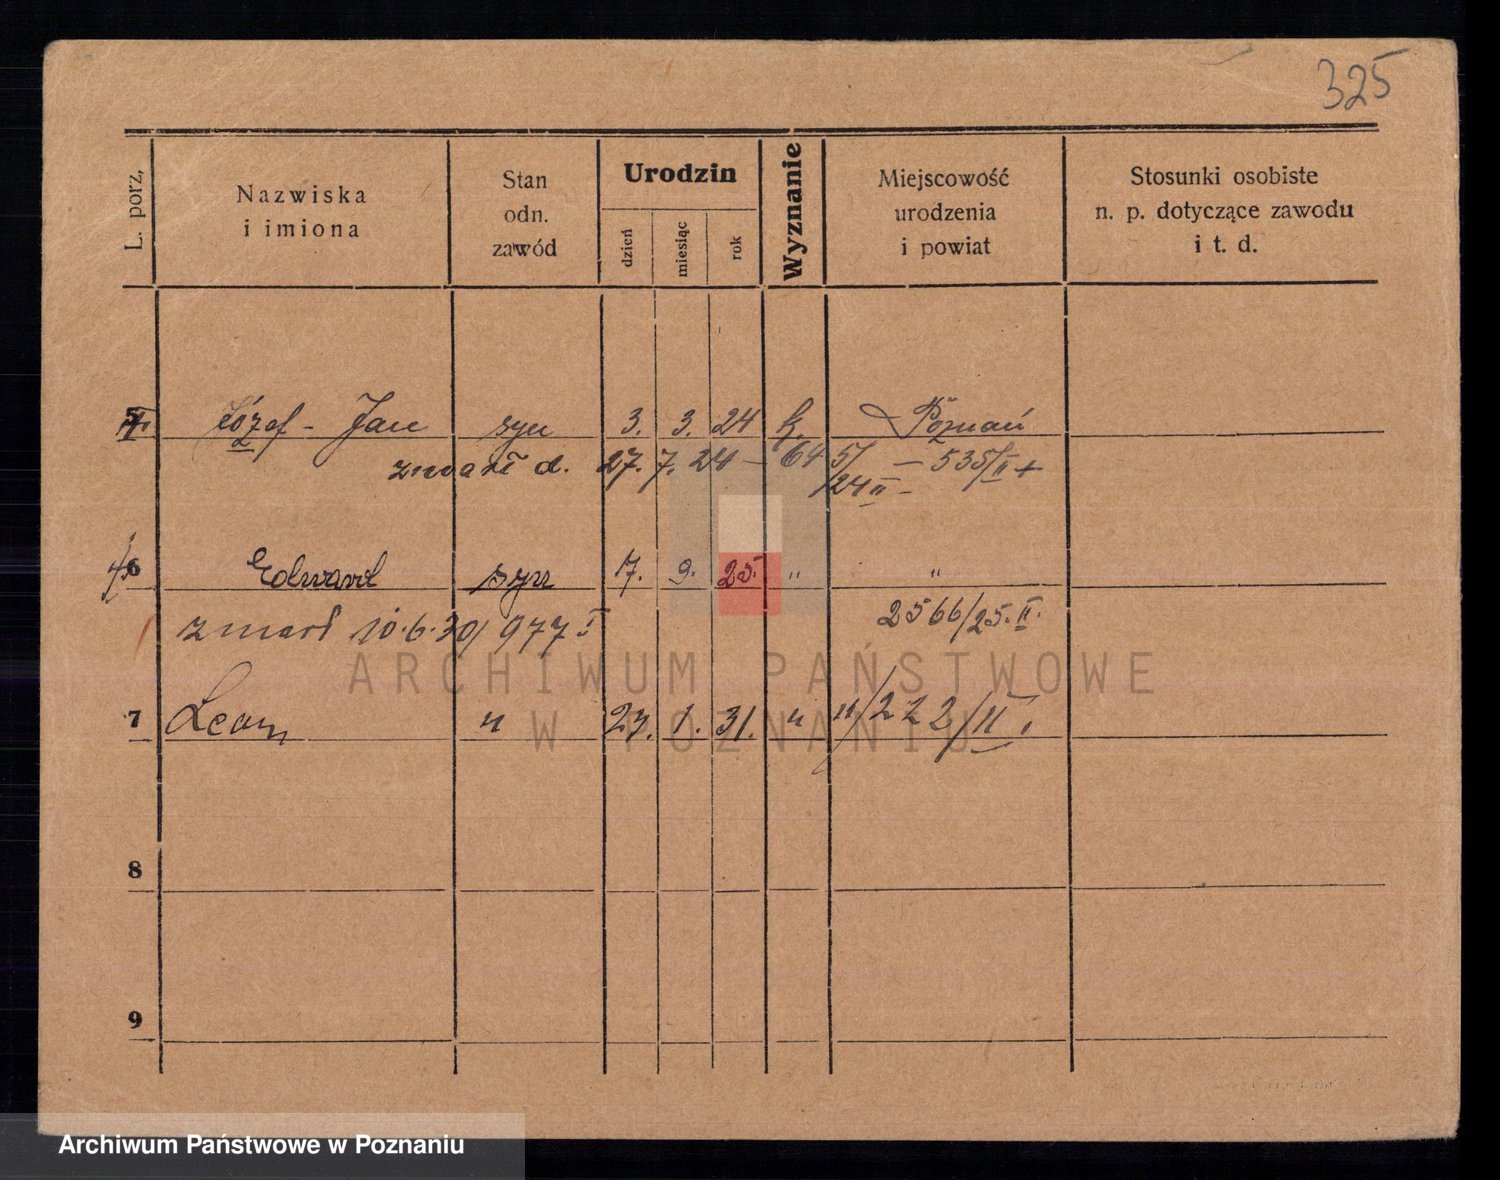 325
L. porz.
Nazwiska
i imiona
Stan
odn.
zawód
Urodzin
dzień
miesiąc
rok
Wyznanie
Miejscowość
urodzenia
i powiat
Stosunki osobiste
n. p. dotyczące zawodu
i t. d.
5 Józef - Jan syn 3. 3. 24 k. Poznań
zmarł d. 27. 7. 24 - 64 5/ - 535/II +
/24 II -
6 Edward syn 17. 9. 25. " "
zmarł 10.6.30/977 I 2566/25. II.
ARCHIWUM PAŃSTWOWE
W POZNANIU
7 Leon " 23. 1. 31. " "/222/II
8
9
Archiwum Państwowe w Poznaniu